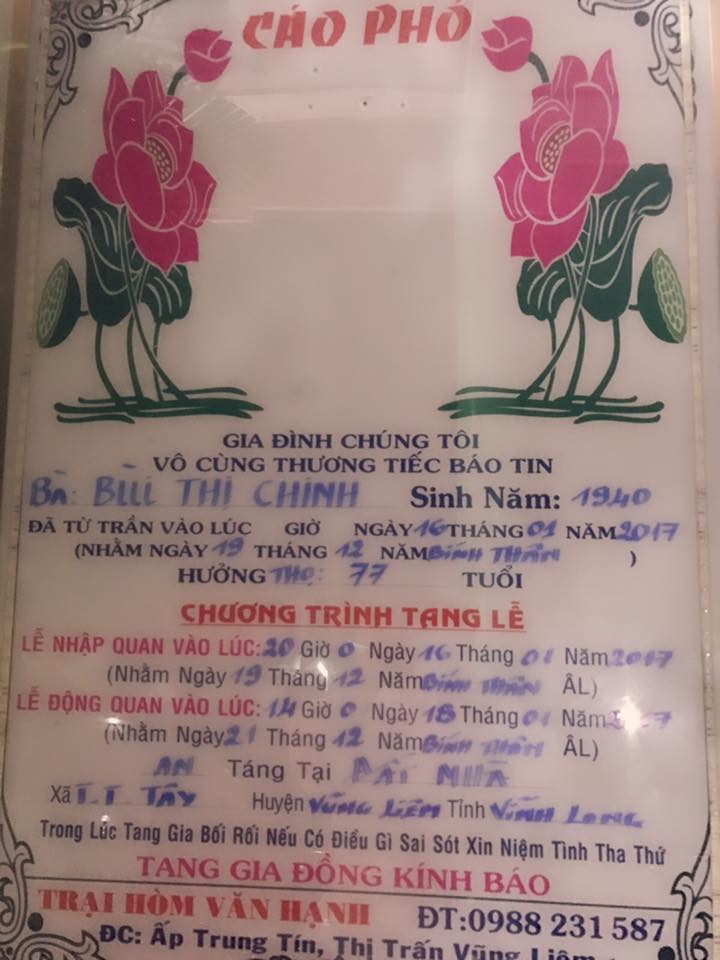 CÁO PHÓ
GIA ĐÌNH CHÚNG TÔI
VÔ CÙNG THƯƠNG TIẾC BÁO TIN
Bà: BÙI THỊ CHÍNH Sinh Năm: 1940
ĐÃ TỪ TRẦN VÀO LÚC GIỜ NGÀY 16 THÁNG 01 NĂM 2017
(NHẰM NGÀY 19 THÁNG 12 NĂM BÍNH THÂN )
HƯỞNG THỌ: 77 TUỔI
CHƯƠNG TRÌNH TANG LỄ
LỄ NHẬP QUAN VÀO LÚC: 20 Giờ 0 Ngày 16 Tháng 01 Năm 2017
(Nhằm Ngày 19 Tháng 12 Năm BÍNH THÂN ÂL)
LỄ ĐỘNG QUAN VÀO LÚC: 14 Giờ 0 Ngày 18 Tháng 01 Năm 2017
(Nhằm Ngày 21 Tháng 12 Năm BÍNH THÂN ÂL)
AN Táng Tại ĐẤT NHÀ
Xã T.T TÂY Huyện VŨNG LIÊM Tỉnh VĨNH LONG
Trong Lúc Tang Gia Bối Rối Nếu Có Điều Gì Sai Sót Xin Niệm Tình Tha Thứ
TANG GIA ĐỒNG KÍNH BÁO
TRẠI HÒM VĂN HẠNH ĐT:0988 231 587
ĐC: Ấp Trung Tín, Thị Trấn Vũng Liêm